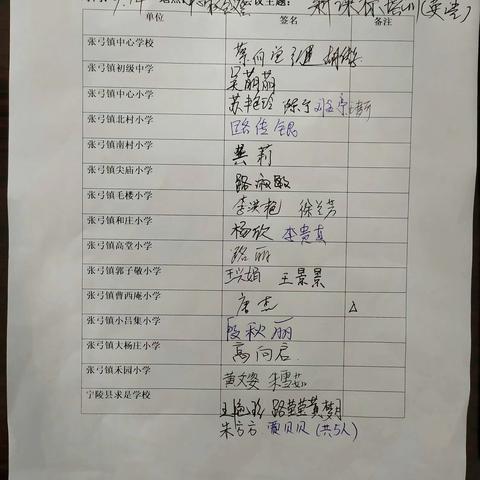 9.14 议主题: 新课标培训(英语)
单位 签名 备注
张弓镇中心学校 蔡向
张弓镇初级中学 吴萌萌
张弓镇中心小学 苏艳玲 陈宁
张弓镇北村小学 路传银
张弓镇南村小学 龚莉
张弓镇尖庙小学 路淑敏
张弓镇毛楼小学 李洪艳 徐兰芳
张弓镇和庄小学 杨欣 李贵真
张弓镇高堂小学 路丽
张弓镇郭子敬小学 王兴娟 王景景
张弓镇曹西庵小学 唐杰 △
张弓镇小吕集小学 段秋丽
张弓镇大杨庄小学 高向启
张弓镇禾园小学 黄文姿 朱雪茹
宁陵县求是学校
王艳玲 路莹莹 黄梦月
朱方方 贾贝贝 (共5人)